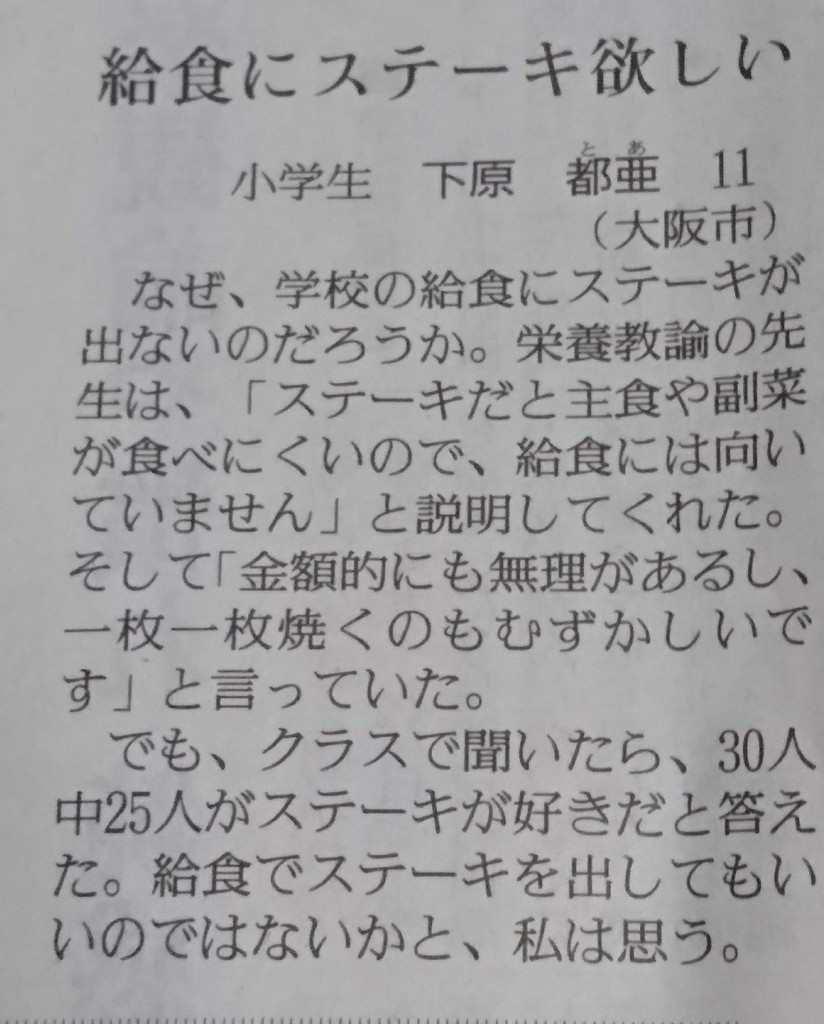 給食にステーキ欲しい
小学生　下原　都亜　11
とあ
（大阪市）
なぜ、学校の給食にステーキが
出ないのだろうか。栄養教諭の先
生は、「ステーキだと主食や副菜
が食べにくいので、給食には向い
ていません」と説明してくれた。
そして「金額的にも無理があるし、
一枚一枚焼くのもむずかしいで
す」と言っていた。
でも、クラスで聞いたら、30人
中25人がステーキが好きだと答え
た。給食でステーキを出してもい
いのではないかと、私は思う。